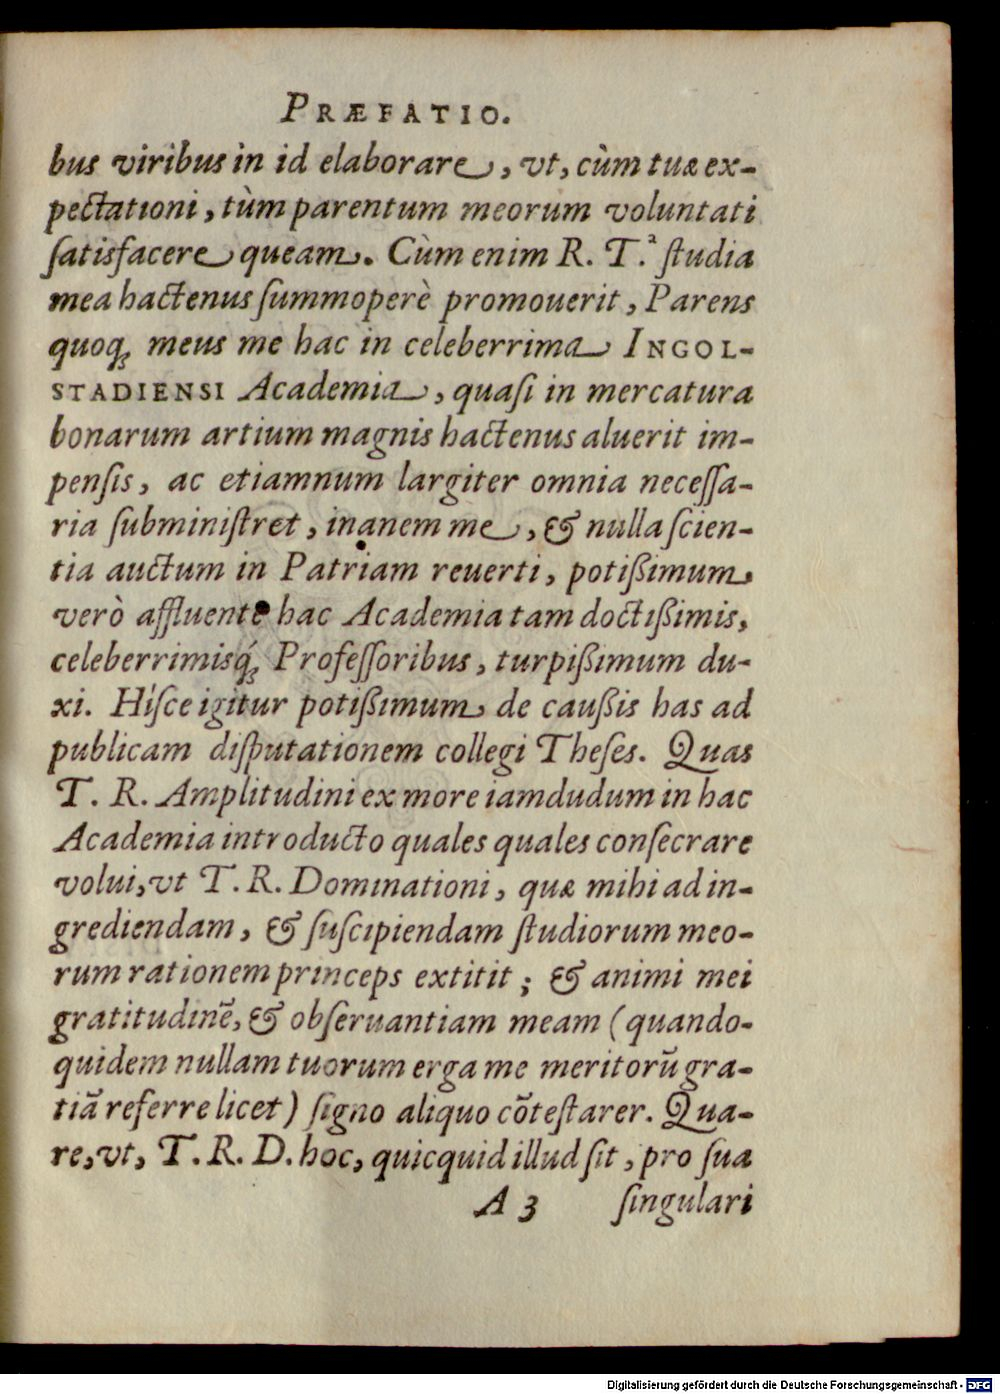 PRÆFATIO.
bus viribus in id elaborare, vt, cùm tuæ ex-
pectationi, tùm parentum meorum voluntati
ſatisfacere queam. Cùm enim R. T.ª ſtudia
mea hactenus ſummoperè promouerit, Parens
quoq́ꝫ meus me hac in celeberrima INGOL-
STADIENSI Academia, quaſi in mercatura
bonarum artium magnis hactenus aluerit im-
penſis, ac etiamnum largiter omnia neceſſa-
ria ſubminiſtret, inanem me, & nulla ſcien-
tia auctum in Patriam reuerti, potißimum
verò affluente hac Academia tam doctißimis,
celeberrimisq́ꝫ Profeſſoribus, turpißimum du-
xi. Hiſce igitur potißimum de caußis has ad
publicam diſputationem collegi Theſes. Quas
T. R. Amplitudini ex more iamdudum in hac
Academia introducto quales quales conſecrare
volui, vt T. R. Dominationi, quæ mihi ad in-
grediendam, & ſuſcipiendam ſtudiorum meo-
rum rationem princeps extitit; & animi mei
gratitudinẽ, & obſeruantiam meam (quando-
quidem nullam tuorum erga me meritorũ gra-
tiã referre licet) ſigno aliquo cõteſtarer. Qua-
re, vt, T. R. D. hoc, quicquid illud ſit, pro ſua
A 3 ſingulari
Digitalisierung gefördert durch die Deutsche Forschungsgemeinschaft - DFG